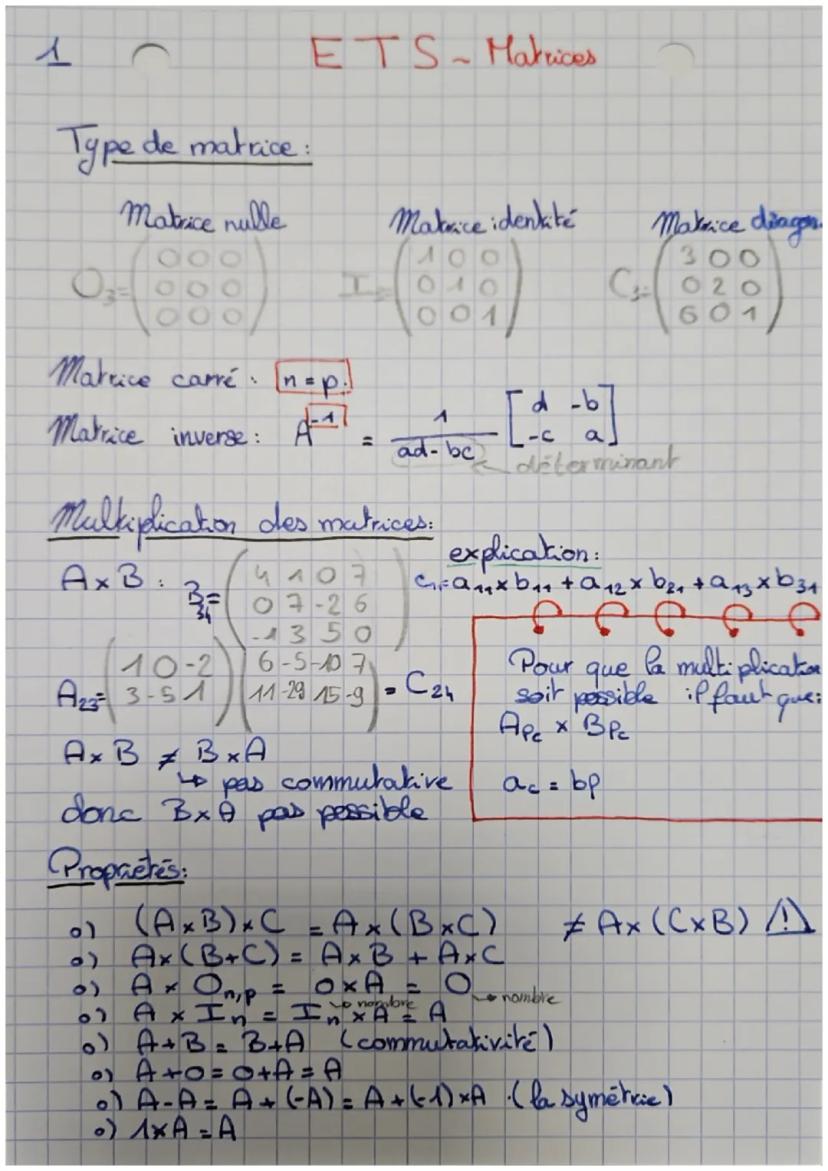 1 ETS - Matrices
Type de matrice :
Matrice nulle Matrice identité Matrice diagon.
O₃ = (0 0 0 / 0 0 0 / 0 0 0) I₃ = (1 0 0 / 0 1 0 / 0 0 1) C₃ = (3 0 0 / 0 2 0 / 6 0 1)
Matrice carré : n = p.
Matrice inverse : A⁻¹ = 1/(ad-bc) [d -b / -c a]
déterminant
Multiplication des matrices :
explication :
A x B : B₃₄ = (4 1 0 7 / 0 7 -2 6 / -1 3 5 0) c₁₁ = a₁₁ x b₁₁ + a₁₂ x b₂₁ + a₁₃ x b₃₁
A₂₃ = (1 0 -2 / 3 -5 1) (6 -5 -10 7 / 11 -29 15 -9) = C₂₄
Pour que la multiplication
soit possible il faut que :
Apc x Bpc
ac = bp
A x B ≠ B x A
↳ pas commutative
donc B x A pas possible
Propriétés :
o) (A x B) x C = A x (B x C) ≠ A x (C x B) ⚠
o) A x (B + C) = A x B + A x C
o) A x On,p = 0 x A = O → nombre
o) A x In = In x A = A
↳ nombre
o) A + B = B + A (commutativité)
o) A + 0 = 0 + A = A
o) A - A = A + (-A) = A + (-1) x A . (la symétrie)
o) 1 x A = A